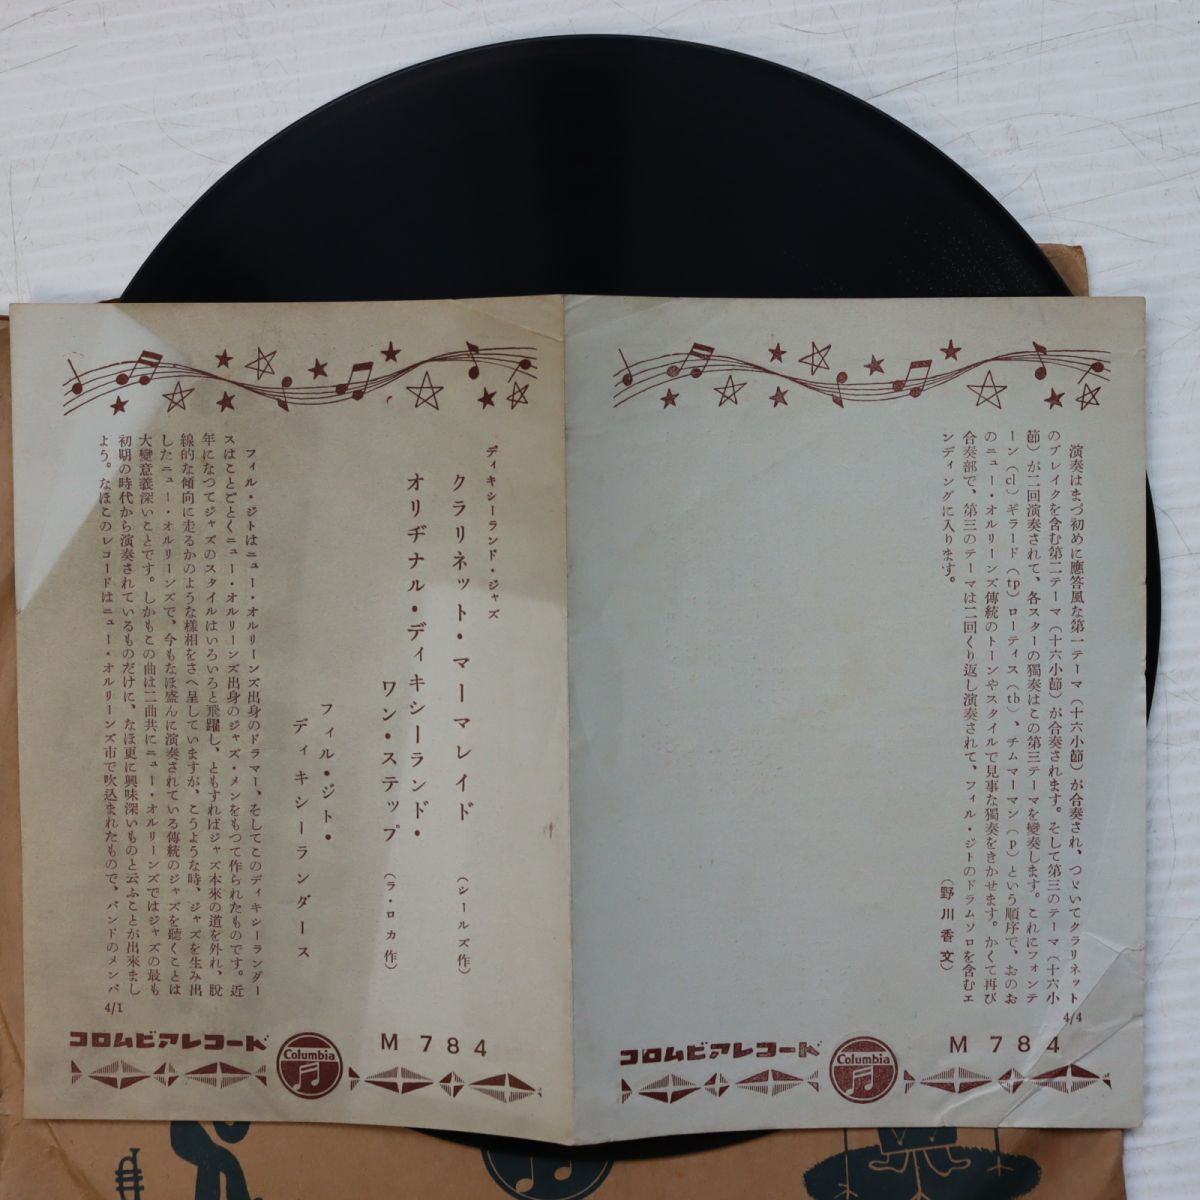 ディキシーランド・ジャズ
クラリネット・マーマレイド
(シールズ作)
オリヂナル・ディキシーランド・
ワン・ステップ
(ラ・ロカ作)
フィル・ジト・
ディキシーランダース
フィル・ジトはニュー・オルリーンズ出身のドラマー、そしてこのディキシーランダー
スはことごとくニュー・オルリーンズ出身のジャズ・メンをもつて作られたものです。近
年になつてジャズのスタイルはいろいろと飛躍し、ともすればジャズ本來の道を外れ、脫
線的な傾向に走るかのような樣相をさへ呈していますが、こうような時、ジャズを生み出
したニュー・オルリーンズで、今もなほ盛んに演奏されている傳統のジャズを聽くことは
大變意義深いことです。しかもこの曲は二曲共にニュー・オルリーンズではジャズの最も
初期の時代から演奏されているものだけに、なほ更に興味深いものと云ふことが出來まし
よう。なほこのレコードはニュー・オルリーンズ市で吹込まれたもので、バンドのメンバ
4/1
コロムビアレコード
Columbia
M 784
演奏はまづ初めに應答風な第一テーマ(十六小節)が合奏され、つゞいてクラリネット
のブレイクを含む第二テーマ(十六小節)が合奏されます。そして第三のテーマ(十六小
節)が二回演奏されて、各スターの獨奏はこの第三テーマを變奏します。これにフォンテ
ーン(cl)ギラード(tp)ローティス(tb)、チムマーマン(p)という順序で、おのお
のニュー・オルリーンズ傳統のトーンやスタイルで見事な獨奏をきかせます。かくて再び
合奏部で、第三のテーマは二回くり返し演奏されて、フィル・ジトのドラムソロを含むエ
ンディングに入ります。
(野川香文)
4/4
コロムビアレコード
Columbia
M 784